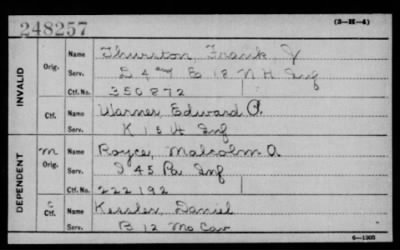 248257
(3-H-4)
INVALID
Orig.
Name Thurston, Frank J
Serv. E 18 N H Inf
Ctf. No. 350872
Ctf.
Name Warner, Edward P.
Serv. K 1 U Inf
DEPENDENT
M Orig.
Name Royce, Malcolm O.
Serv. I 45 Pa Inf
Ctf. No. 222192
C Ctf.
Name Kessler, Daniel
Serv. B 12 Mo Cav
6-1908